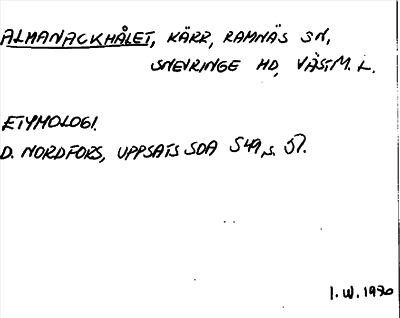 ALMANACKHÅLET, KÄRR, RAMNÄS SN,
SNEVRINGE HD, VÄSTM. L.
ETYMOLOGI.
D. NORDFORS, UPPSATS SOA S49, s. 57.
I. W. 1970